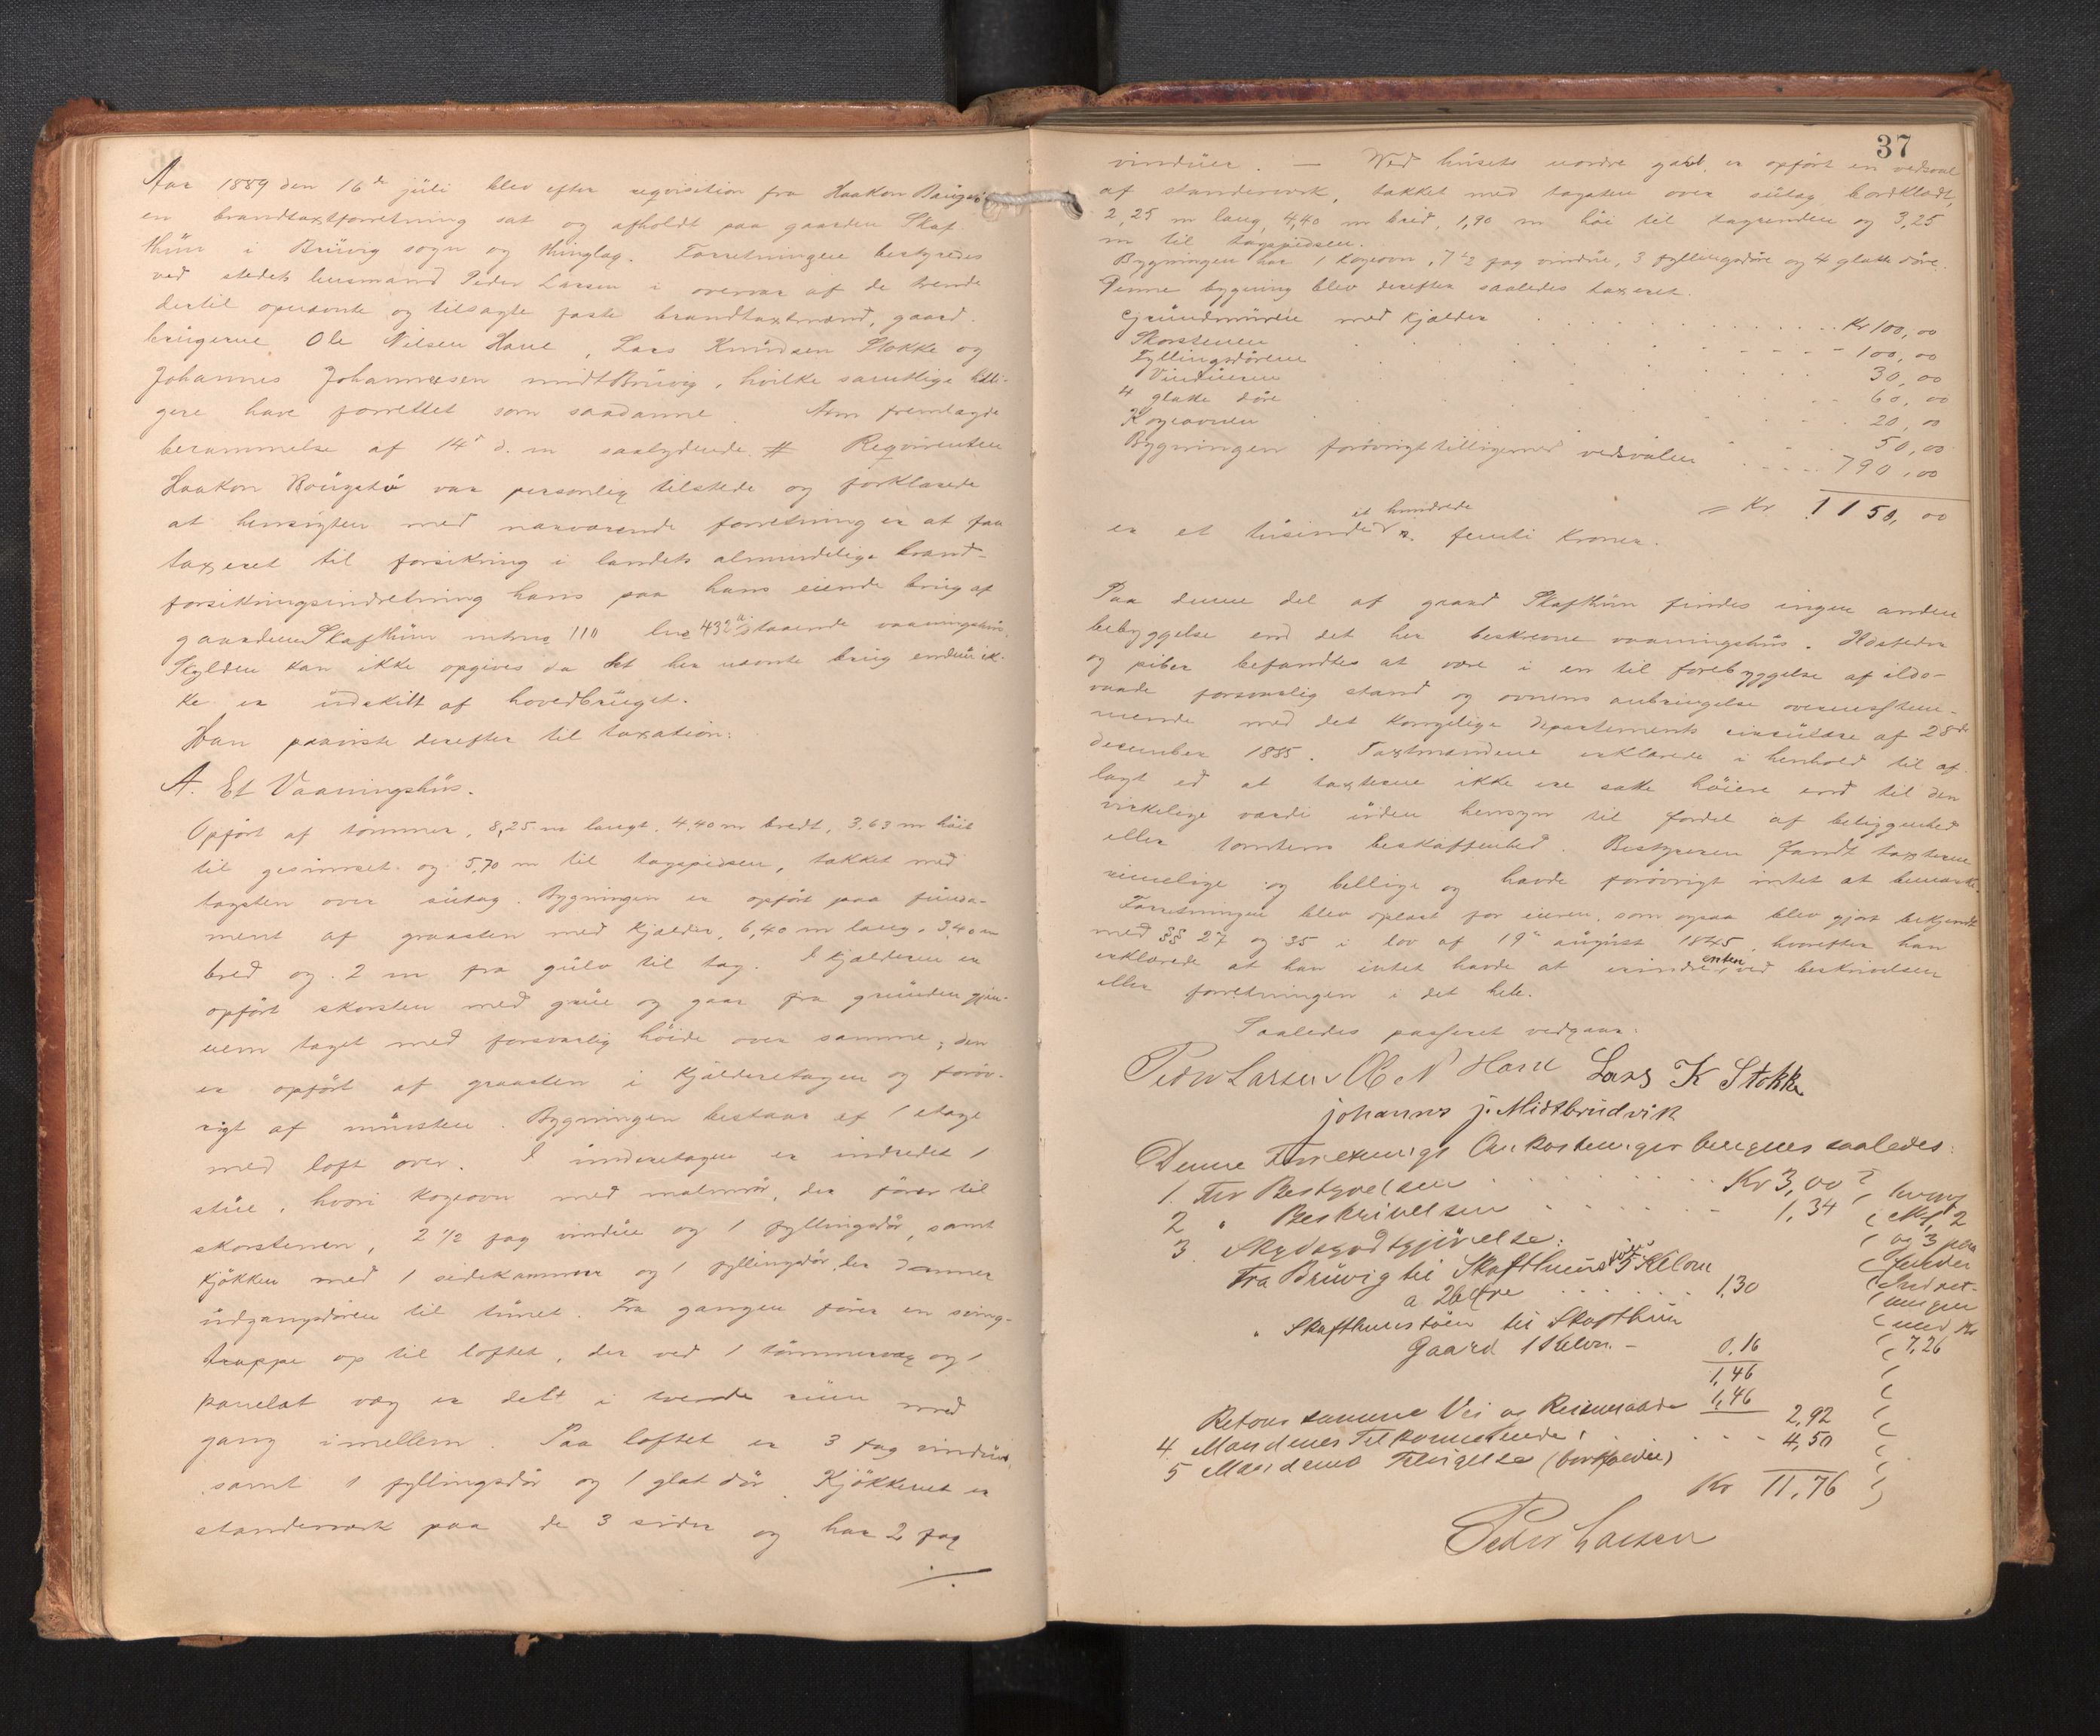 Aar 1889 den 16de juli blev efter reqvisition fra Haakon Baugstö
en brandtaxtforretning sat og afholdt paa gaarden Skaf
thun i Bruvig sogn og thinglag. Forretningen bestyredes
ved stedets lensmand Peder Larsen i overvær af de trende
dertil opnævnte og tilsagte faste brandtaxtmænd, gaard
brugerne Ole Nilsen Hane, Lars Knudsen Stokke og
Johannes Johannesen midtBruvig, hvilke samtlige tidli-
gere have forrettet som saadanne. Man fremlagde
berammelse af 14de d. m saalydende # Reqvirenten
Haakon Bougstö var personlig tilstede og forklarede
at hensigten med nærværende forretning er at faa
taxeret til forsikring i landets almindelige brand-
forsikringsindretning hans paa hans eiende brug af
gaarden Skafthun mtrno 110 lno 432a staaende vaaningshus.
Skylden kan ikke opgives da det her nævnte brug endnu ik-
ke er udskilt af hovedbruget.
Han paaviste derefter til taxation:
A. Et Vaaningshus.
Opfört af tömmer, 8,25 m langt, 4,40 m bredt, 3,63 m höit
til gesimset og 5,70 m til tagspidsen, takket med
tagsten over sutag. Bygningen er opfört paa funda-
ment af graasten med kjælder, 6,40 m lang, 3,40 m
bred og 2 m fra gulv til tag. I kjælderen er
opfört skorsten med grue og gaar fra grunden gjen-
nem taget med forsvarlig höide over samme; den
er opfört af graasten i kjælderetagen og forøv-
rigt af mursten. Bygningen bestaar af 1 etage
med loft over. I underetagen er indredet 1
stue, hvori kogeovn med malmrör, der förer til
skorstenen, 2 1/2 fag vindue og 1 fyllingsdör, samt
kjökken med 1 sidekammer og 1 fyllingsdör, der danner
udgangsdören til tunet. Fra gangen förer en sving-
trappe op til loftet, der ved 1 tömmervæg og 1
panelet væg er delt i tvende rum med
gang imellem. Paa loftet er 3 fag vinduer,
samt 1 fyllingsdör og 1 glat dör. Kjökkenet er
standerværk paa de 3 sider og har 2 fag
./.
37
vinduer. — Ved husets nordre gavl er opfört en vedsval
af standerværk, takket med tagsten over sutag, bordklædt,
2,25 m lang, 4,40 m bred, 1,90 m höi til tagrenden og 3,25
m til tagspidsen.
Bygningen har 1 kogeovn, 7 1/2 fag vindue, 3 fyllingsdöre og 4 glatte döre.
Denne bygning blev derefter saaledes taxeret.
Grundmuren med kjælder . . . . Kr 100,00
Skorstenen . . . . 100,00
Fyllingsdörene . . . . 30,00
Vinduerne . . . . 60,00
4 glatte döre . . . . 20,00
Kogeovnen . . . . 50,00
Bygningen forövrigt tilligemed vedsvalen . . . . 790,00
= Kr 1150,00
er et tusinde et hundrede femti Kroner.
Paa denne del af gaard Skafthun findes ingen anden
bebyggelse end det her beskrevne vaaningshus. Ildsteder
og piber befandtes at være i en til forebyggelse af ilds-
vaade forsvarlig stand og ovnens anbringelse overensstem-
mende med det kongelige Departements cirkulære af 28de
december 1885. Taxtmændene erklærede i henhold til af
lagt ed at taxterne ikke ere satte höiere end til den
virkelige værdi uden hensyn til fordel af beliggenhed
eller tomtens beskaffenhed. Bestyreren fandt taxterne
rimelige og billige og havde forövrigt intet at bemærke.
Forretningen blev oplæst for eieren, som ogsaa blev gjort bekjendt
med §§ 27 og 35 i lov af 19de august 1845, hvorefter han
erklærede at han intet havde at erindre enten ved beskrivelsen
eller forretningen i det hele.
Saaledes passeret vedgaar.
Peder Larsen O. N Hane Lars K Stokke
johannes j. Midtbrudvik
Denne Forretnings Omkostninger beregnes saaledes:
1. For Bestyrelsen . . . . Kr 3,00 } hvoraf
2 " Beskrivelsen . . . . 1,34 ( No 1, 2
3 Skydsgodtgjörelse: ( og 3 paa
Fra Bruvig til Skafthunstöen 5 Kilom ( Indret-
a 26 Öre . . . . 1,30 ( ningen
" Skafthunstöen til Skafthun ( med Kr
Gaard 1 Kilom. – 0,16 ( 7,26
1,46
Retour samme Vei og Reisemaade 1,46 2,92
4 Mændenes Tilkommende . . . . 4,50
5 Mændenes Tilsigelse (bortfalder)
Kr 11,76
Peder Larsen